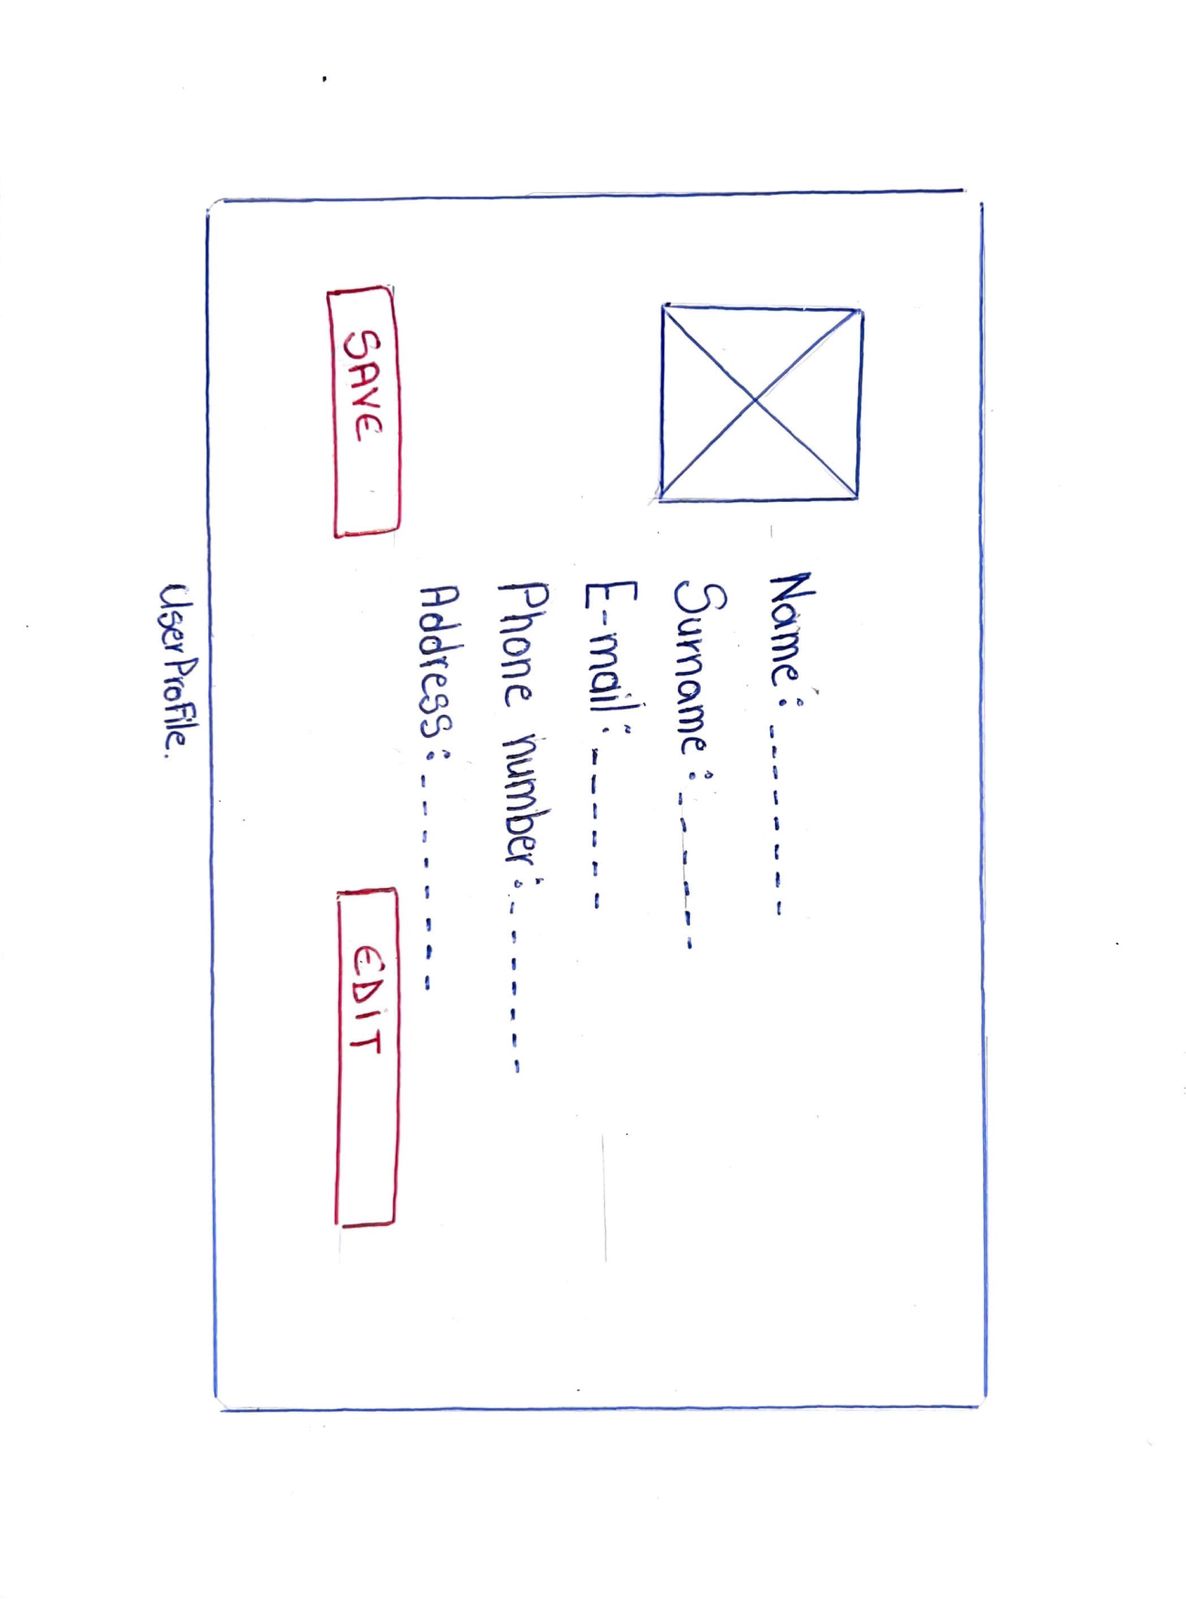 Name: --------
Surname: ------
E-mail: ------
Phone number: -------
Address: --------
SAVE
EDIT
User Profile.